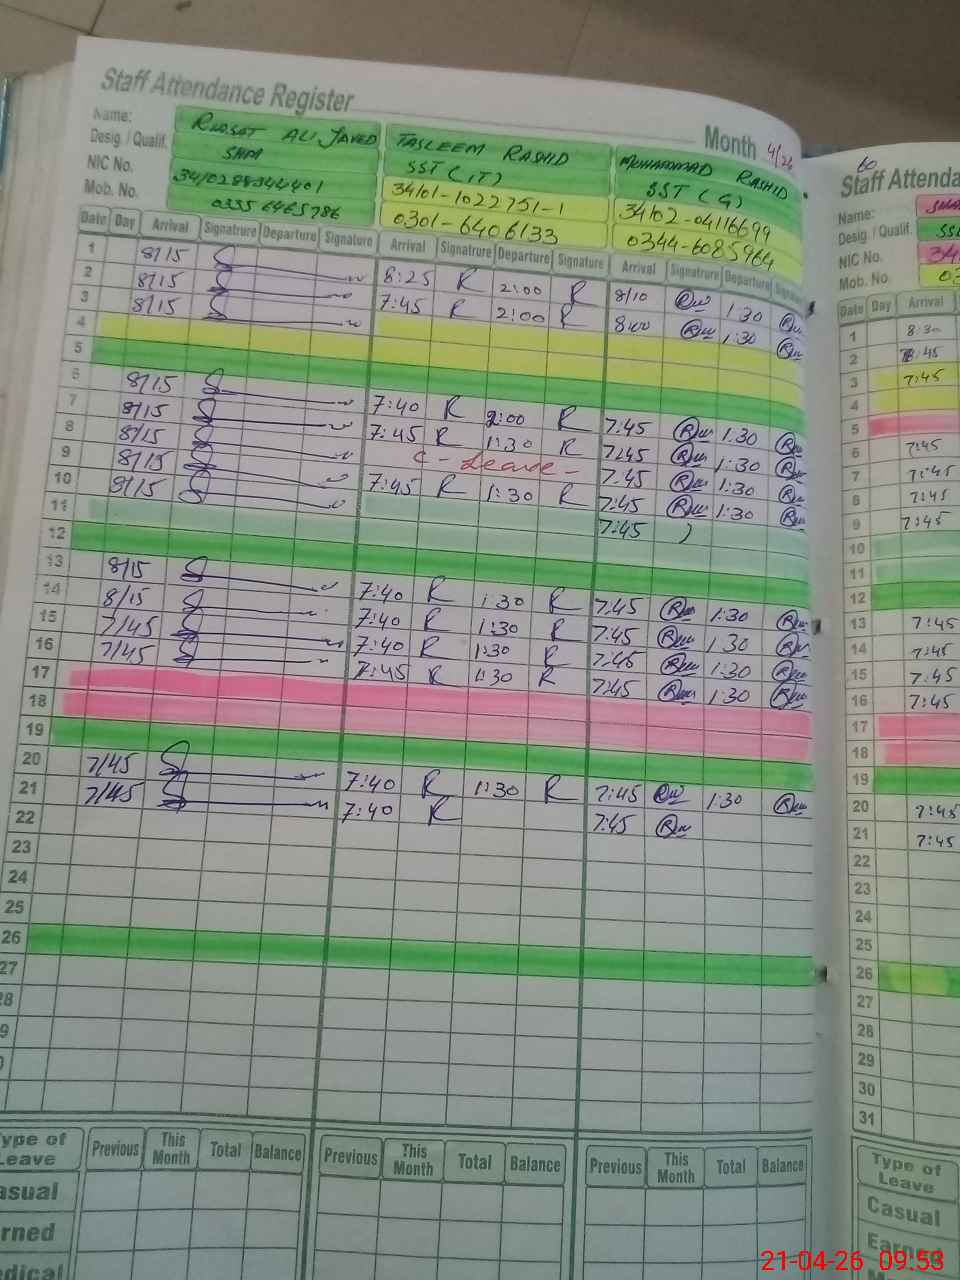 Staff Attendance Register
Month 4/26
Name: RUQSAT ALI JAVED TASLEEM RASHID MUHAMMAD RASHID
Desig. / Qualif. SHM SST (IT) SST (G)
NIC No. 34101-1022751-1 34102-04116699
Mob. No. 0335 6465786 0301-6406133 0344-6085964
Date Day Arrival Signature Departure Signature Arrival Signature Departure Signature Arrival Signature Departure
1 8/15 8:25 R 2:00 R 8/10 1:30
2 8/15 7:45 R 2:00 R 8:00 1:30
3 8/15
4
5
6 8/15 7:40 R 2:00 R 7:45 1:30
7 8/15 7:45 R 1:30 R 7:45 1:30
8 8/15 C - Leave - 7:45 1:30
9 8/15 7:45 R 1:30 R 7:45 1:30
10 8/15 7:45
11
12
13 8/15 7:40 R 1:30 R 7:45 1:30
14 8/15 7:40 R 1:30 R 7:45 1:30
15 7/45 7:40 R 1:30 R 7:45 1:30
16 7/45 7:45 R 1:30 R 7:45 1:30
17
18
19
20 7/45 7:40 R 1:30 R 7:45 1:30
21 7/45 7:40 R 7:45
22
23
24
25
26
27
28
Type of Leave Previous This Month Total Balance Previous This Month Total Balance Previous This Month Total Balance
Casual
Earned
Medical
60
Staff Attenda
Name:
Desig. / Qualif.
NIC No.
Mob. No.
Date Day Arrival
1 8:30
2 8:45
3 7:45
4
5
6 7:45
7 7:45
8 7:45
9 7:45
10
11
12
13 7:45
14 7:45
15 7:45
16 7:45
17
18
19
20 7:45
21 7:45
22
23
24
25
26
27
28
29
30
31
Type of Leave
Casual
Earned
21-04-26 09:53